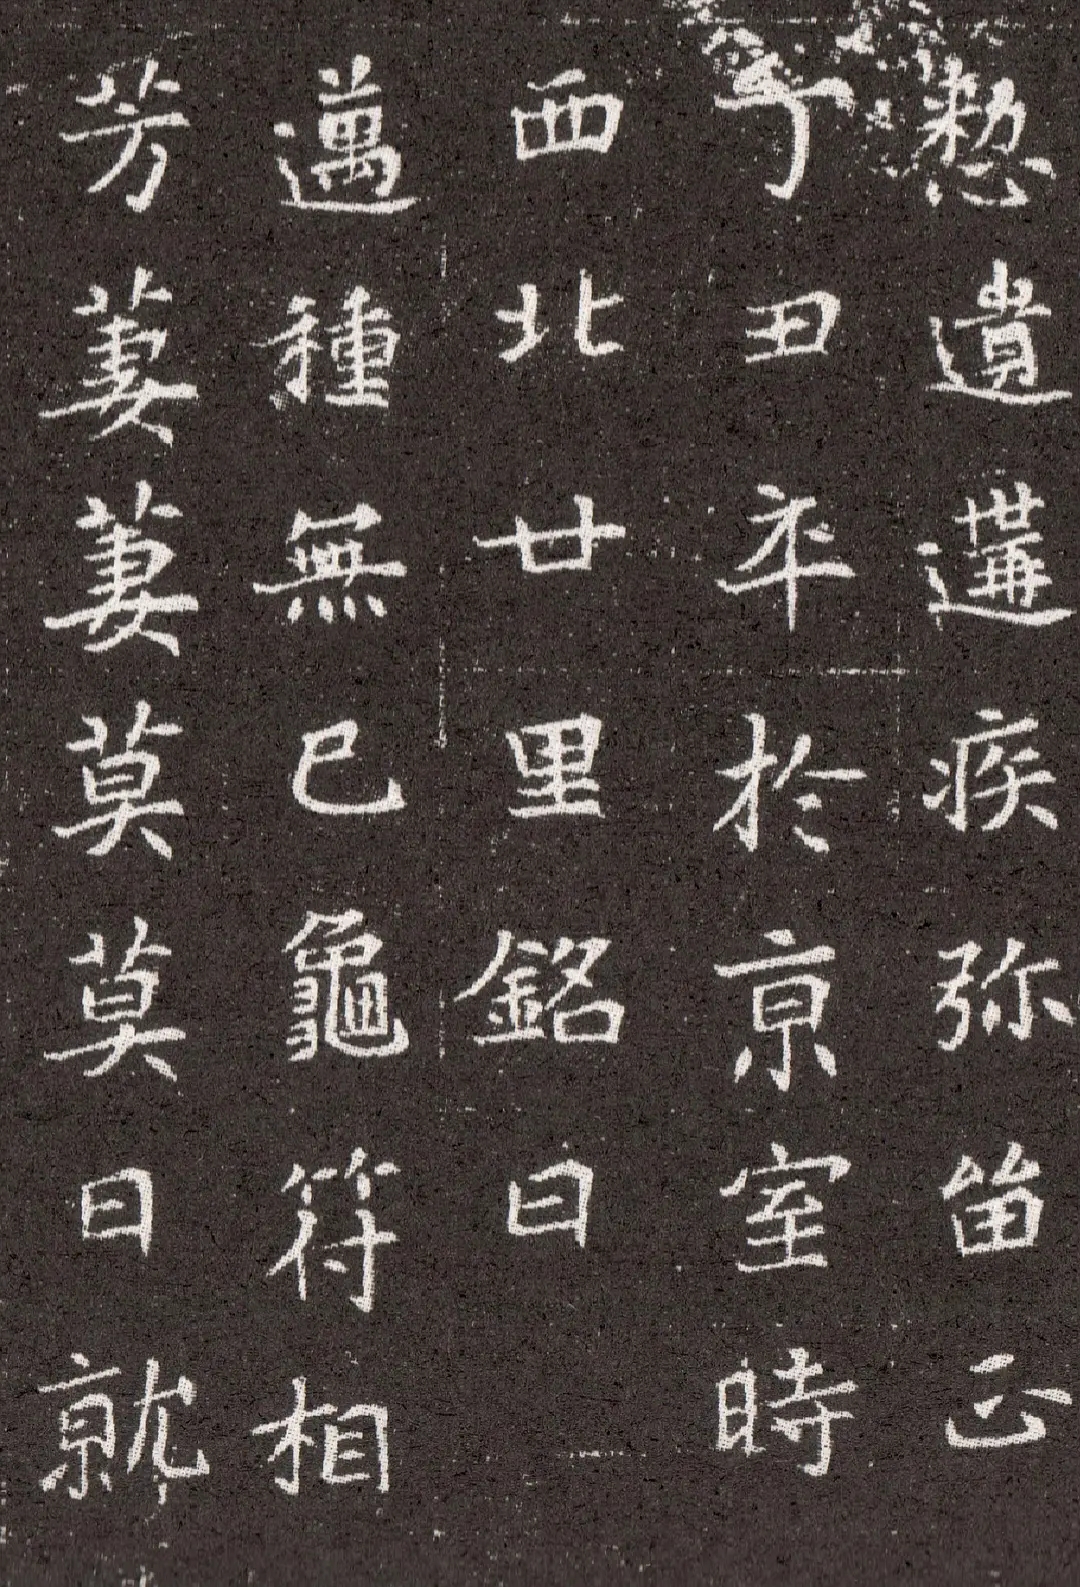 憗遺遘疾弥留正
丁丑卒於京室時
西北廿里銘曰
邁種無已龜符相
芳萋萋莫莫日就